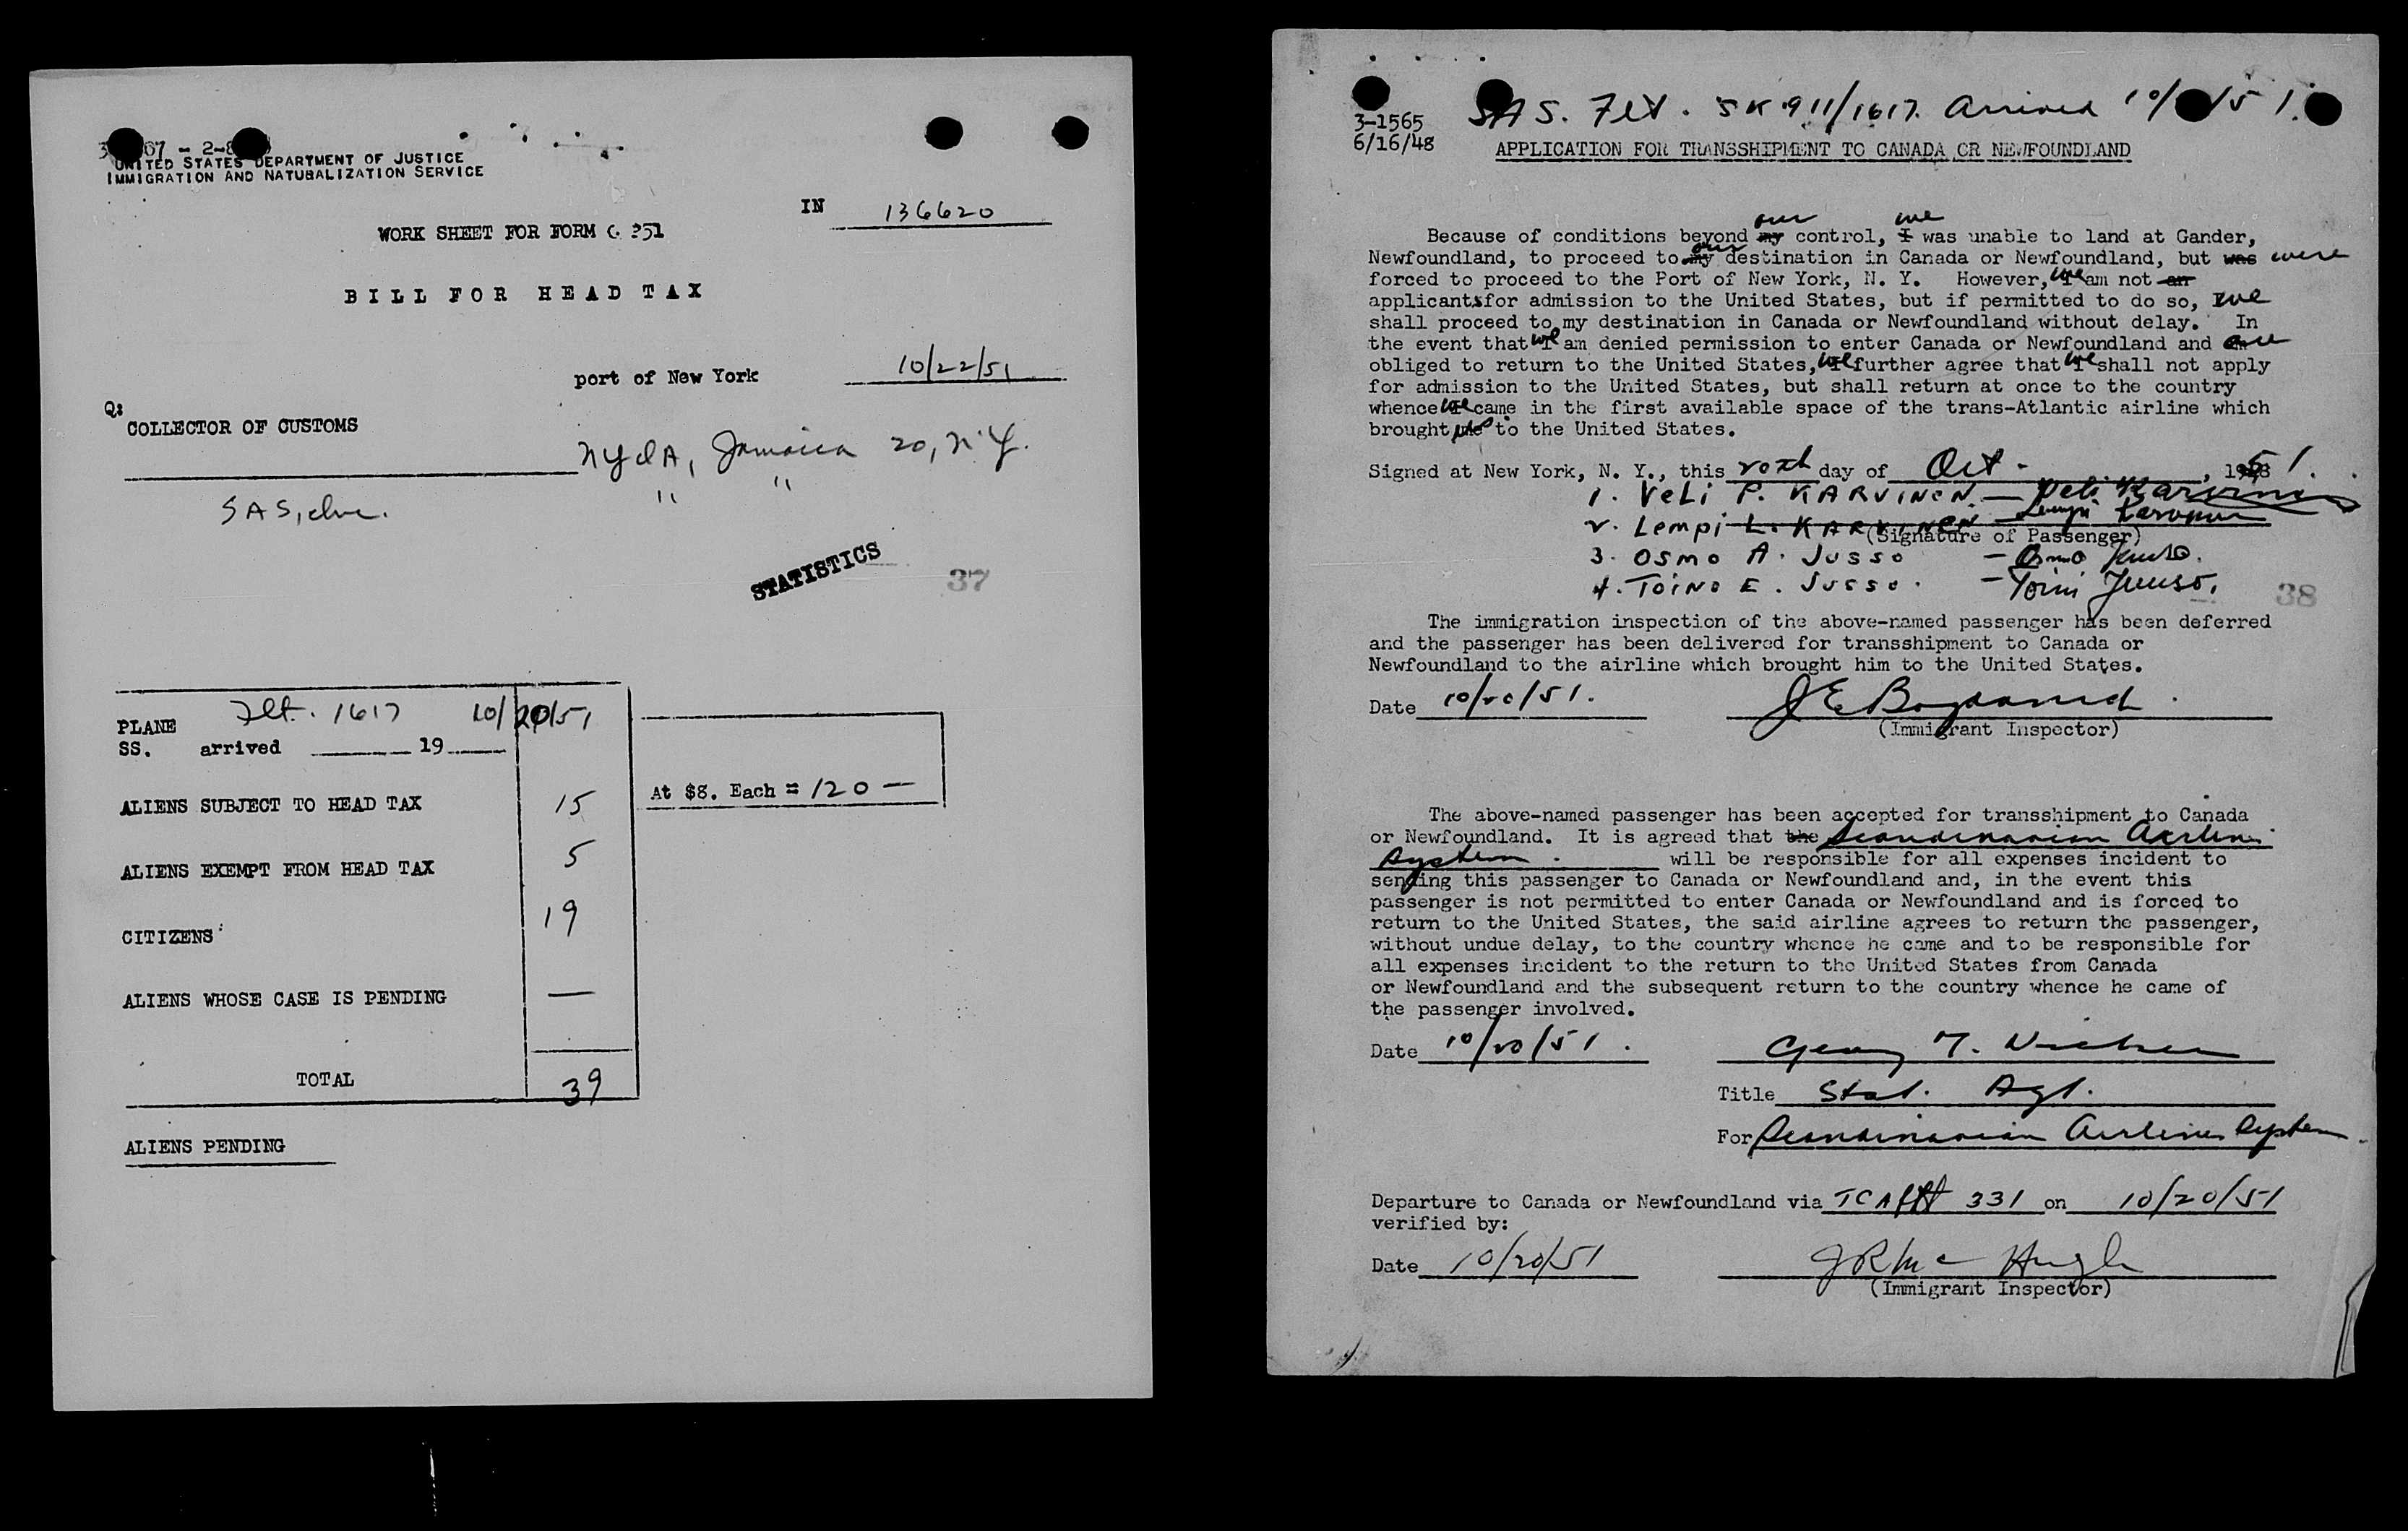 67 - 2-8
UNITED STATES DEPARTMENT OF JUSTICE
IMMIGRATION AND NATURALIZATION SERVICE
IN 136620
WORK SHEET FOR FORM G 351
BILL FOR HEAD TAX
port of New York 10/22/51
Q:
COLLECTOR OF CUSTOMS
NYdA, Jamaica 20, N.Y.
SAS, Inc. " "
STATISTICS 37
PLANE Flt. 1617 10/20/51
SS. arrived 19
ALIENS SUBJECT TO HEAD TAX 15 At $8. Each = 120 —
ALIENS EXEMPT FROM HEAD TAX 5
CITIZENS 19
ALIENS WHOSE CASE IS PENDING —
TOTAL 39
ALIENS PENDING
SAS. Flt. SK 911/1617. Arrived 10/ /51.
3-1565
6/16/48
APPLICATION FOR TRANSSHIPMENT TO CANADA OR NEWFOUNDLAND
our we
Because of conditions beyond my control, I was unable to land at Gander,
Newfoundland, to proceed to my our destination in Canada or Newfoundland, but was were
forced to proceed to the Port of New York, N. Y. However, I we am not an
applicants for admission to the United States, but if permitted to do so, I we
shall proceed to my destination in Canada or Newfoundland without delay. In
the event that I we am denied permission to enter Canada or Newfoundland and are
obliged to return to the United States, I we further agree that I we shall not apply
for admission to the United States, but shall return at once to the country
whence I we came in the first available space of the trans-Atlantic airline which
brought me us to the United States.
Signed at New York, N. Y., this 20th day of Oct. , 1951.
1. Veli P. KARVINEN — Veli Karvinen
2. Lempi L. KARVINEN — Lempi Karvinen
(Signature of Passenger)
3. Osmo A. Jusso — Osmo Juuso.
4. Toino E. Jusso. — Toini Juuso.
38
The immigration inspection of the above-named passenger has been deferred
and the passenger has been delivered for transshipment to Canada or
Newfoundland to the airline which brought him to the United States.
Date 10/20/51.
(Immigrant Inspector)
The above-named passenger has been accepted for transshipment to Canada
or Newfoundland. It is agreed that the Scandinavian Airlines
System. will be responsible for all expenses incident to
sending this passenger to Canada or Newfoundland and, in the event this
passenger is not permitted to enter Canada or Newfoundland and is forced to
return to the United States, the said airline agrees to return the passenger,
without undue delay, to the country whence he came and to be responsible for
all expenses incident to the return to the United States from Canada
or Newfoundland and the subsequent return to the country whence he came of
the passenger involved.
Date 10/20/51.
Title Stat. Agt.
For Scandinavian Airlines System.
Departure to Canada or Newfoundland via TCA flt 331 on 10/20/51
verified by:
Date 10/20/51 JR Mc Hugh
(Immigrant Inspector)